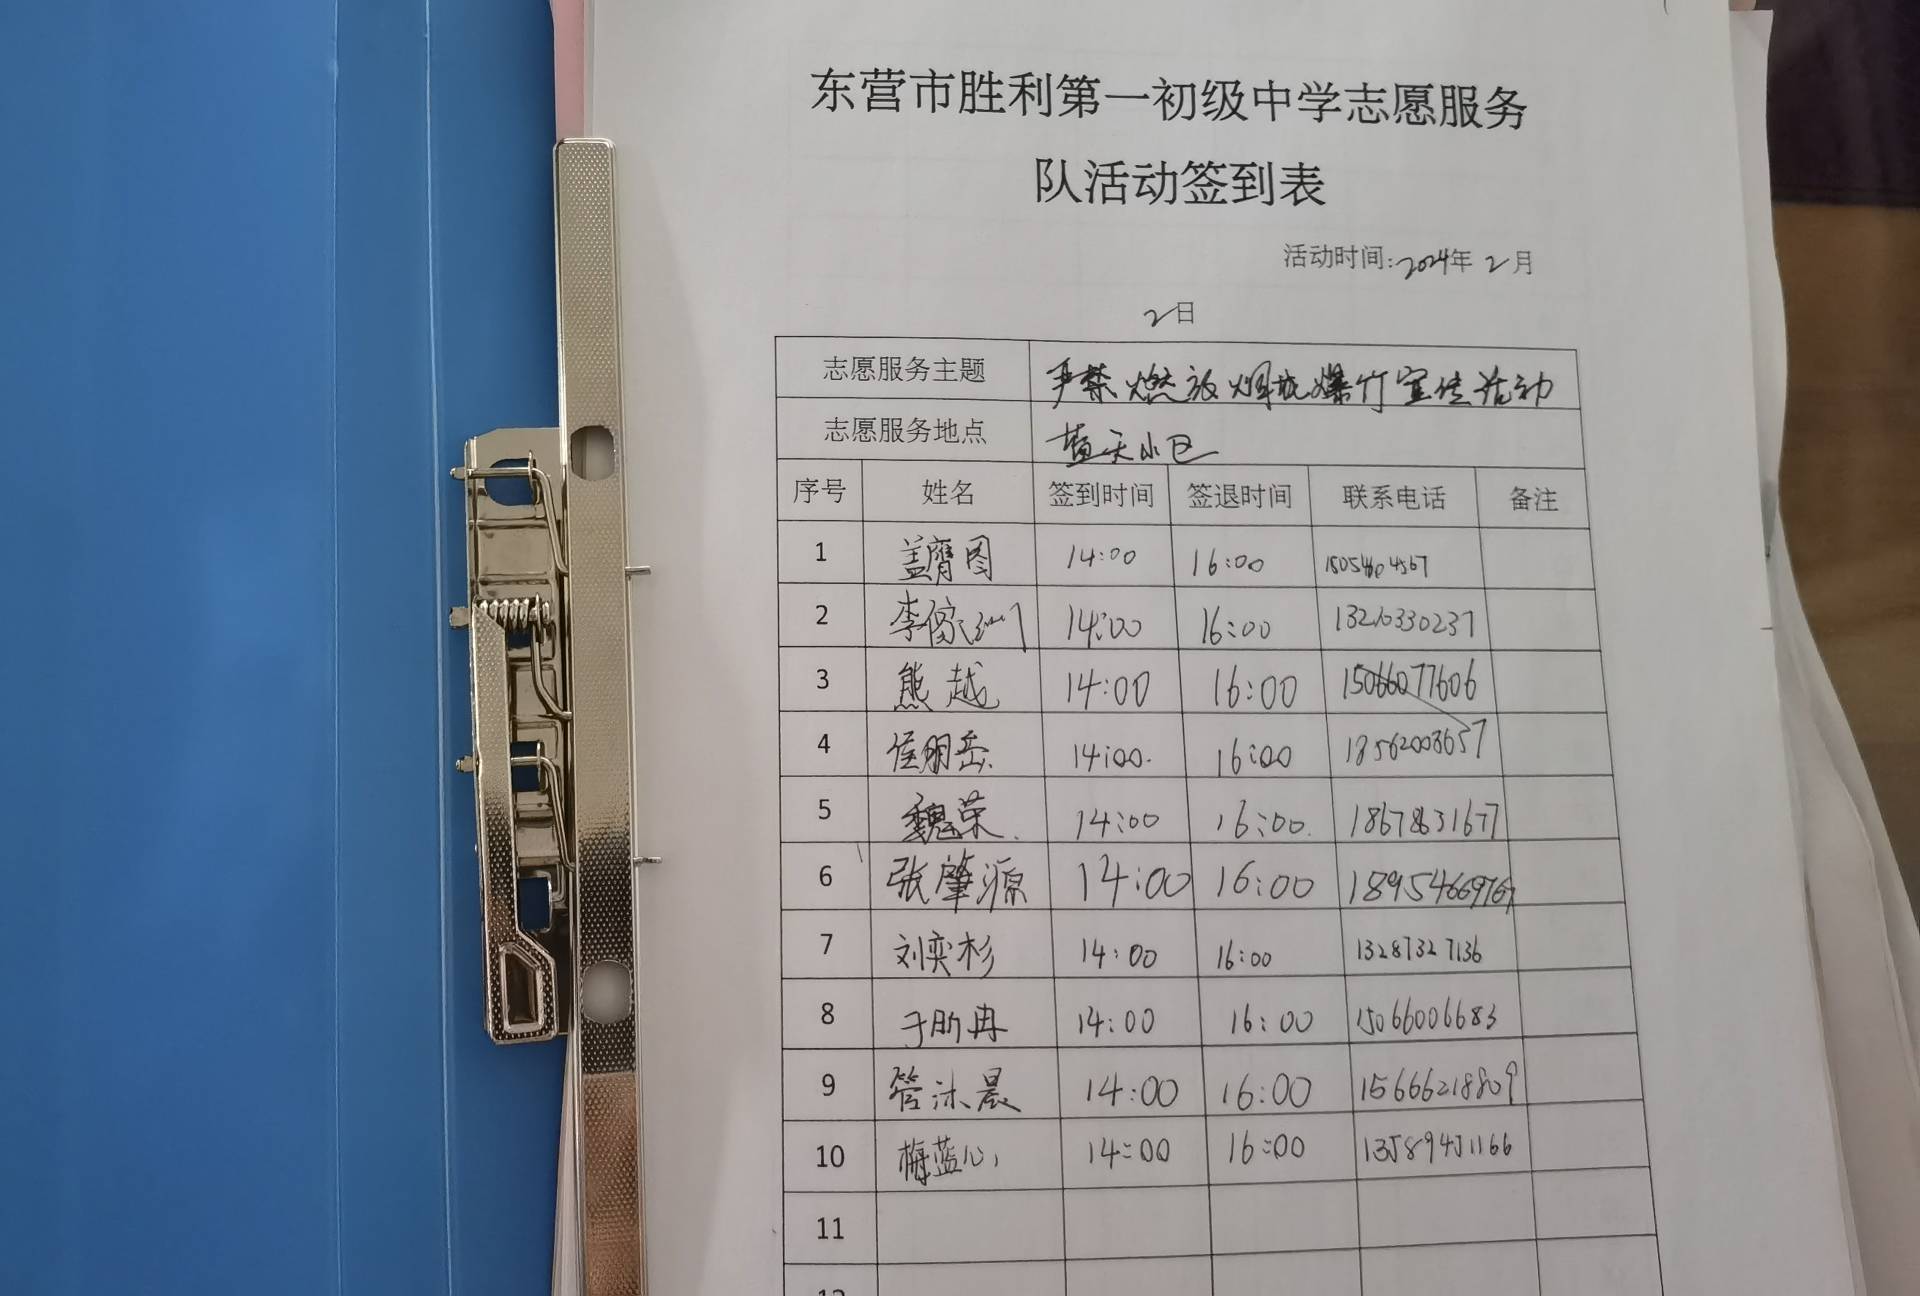 东营市胜利第一初级中学志愿服务
队活动签到表
活动时间:2024年 2 月
2日
志愿服务主题 严禁燃放烟花爆竹宣传活动
志愿服务地点 蓝天小区
序号 姓名 签到时间 签退时间 联系电话 备注
1 盖膺图 14:00 16:00
2 李 14:00 16:00 13210330237
3 熊越 14:00 16:00 15066077606
4 侯明岳 14:00 16:00 18562003657
5 魏荣 14:00 16:00 18678631677
6 张肇源 14:00 16:00 18954669767
7 刘奕杉 14:00 16:00 13287327136
8 于昕冉 14:00 16:00 15066006683
9 管沐晨 14:00 16:00 15666218809
10 梅蓝心 14:00 16:00 13589451166
11